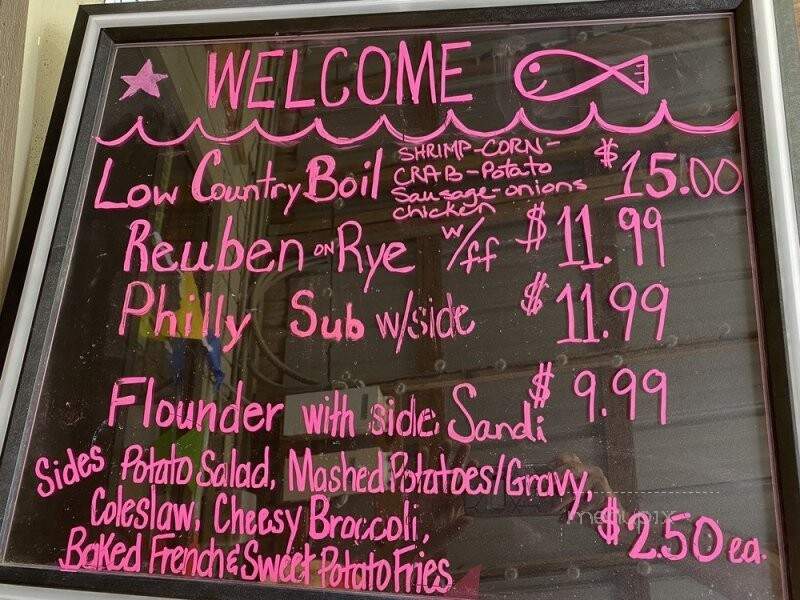 WELCOME
Low Country Boil SHRIMP-CORN- $15.00
CRAB-Potato
Sausage-onions
chicken
Reuben on Rye w/ff $11.99
Philly Sub w/side $11.99
Flounder with side Sandi $9.99
Sides Potato Salad, Mashed Potatoes/Gravy,
Coleslaw, Cheesy Broccoli, $2.50 ea.
Baked French & Sweet Potato Fries
menupix